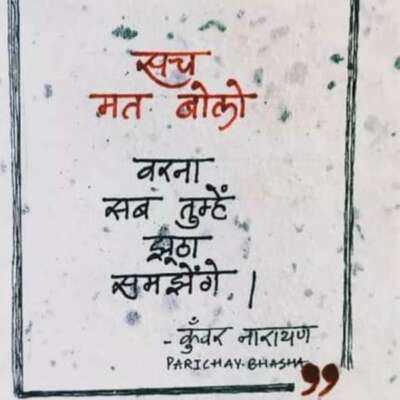 सच
मत बोलो
वरना
सब तुम्हें
झूठा
समझेंगे।
- कुँवर नारायण
PARICHAY.BHASHA